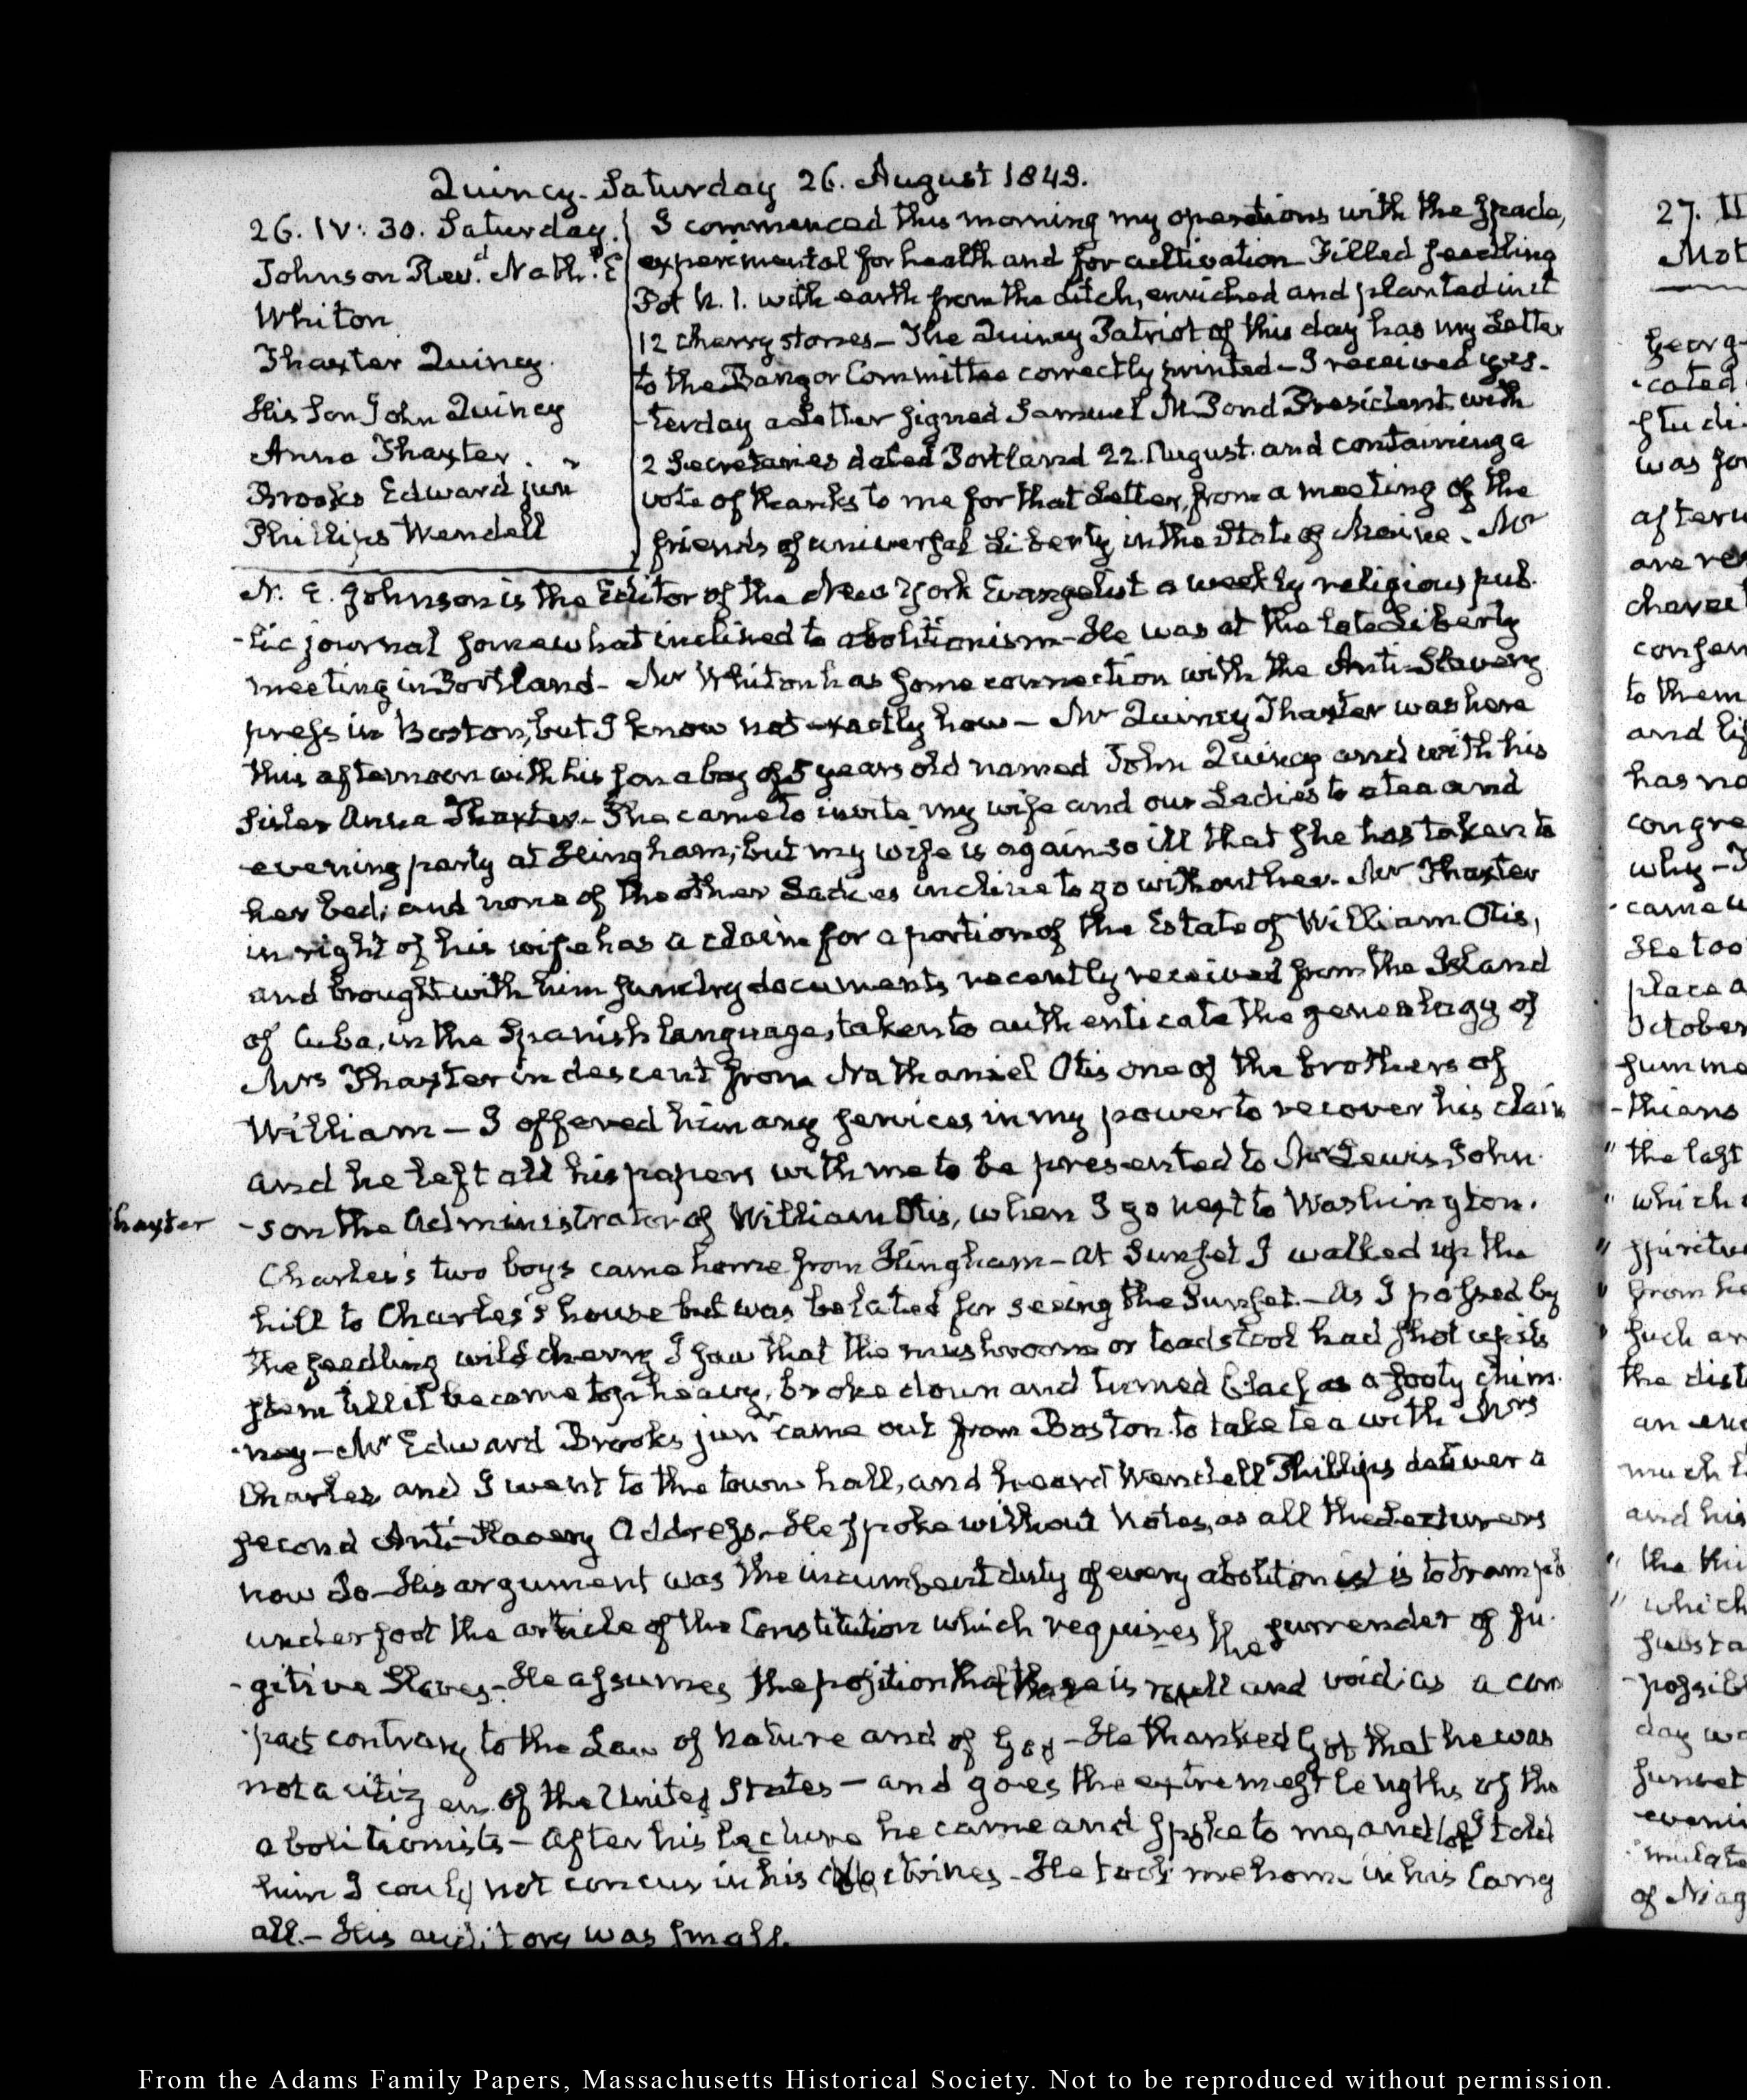 Quincy. Saturday 26. August 1843.
26. IV: 30. Saturday.
Johnson Revd. Nathl. E
Whiton
Thaxter Quincy.
His Son John Quincy
Anna Thaxter . "
Brooks Edward junr
Phillips Wendell
I commenced this morning my operations with the Spade,
experimental for health and for cultivation Filled seedling
Pot N. 1. with earth from the ditch, enriched and planted in it
12 cherry stones— The Quincy Patriot of this day has my Letter
to the Bangor Committee correctly printed— I received yes-
-terday a Letter signed Samuel M Pond President with
2 Secretaries dated Portland 22. August. and containing a
vote of thanks to me for that Letter, from a meeting of the
friends of universal Liberty in the State of Maine. Mr
N. E. Johnson is the Editor of the New York Evangelist a weekly religious pub-
-lic journal somewhat inclined to abolitionism— He was at the late Liberty
meeting in Portland— Mr Whiton has some connection with the Anti-Slavery
press in Boston, but I know not exactly how— Mr Quincy Thaxter was here
this afternoon with his son a boy of 5 years old named John Quincy and with his
Sister Anna Thaxter. She came to invite my wife and our Ladies to a tea and
evening party at Hingham; but my wife is again so ill that she has taken to
her bed; and none of the other Ladies incline to go without her. Mr Thaxter
in right of his wife has a claim for a portion of the Estate of William Otis,
and brought with him sundry documents recently received from the Island
of Cuba, in the Spanish language, taken to authenticate the genealogy of
Mrs Thaxter in descent from Nathaniel Otis one of the brothers of
William— I offered him any services in my power to recover his claim
and he left all his papers with me to be presented to Mr Lewis John-
haxter
-son the Administrator of William Otis, when I go next to Washington.
Charles's two boys came home from Hingham— At Sunset I walked up the
hill to Charles's house but was belated for seeing the Sunset.— As I passed by
the seedling wild cherry I saw that the mushroom or toadstool had shot up its
stem till it became top heavy, broke down and turned black as a sooty chim-
-ney— Mr Edward Brooks junr came out from Boston to take tea with Mrs
Charles, and I went to the town hall, and heard Wendell Phillips deliver a
second Anti-Slavery Address— He spoke without Notes, as all the Lecturers
now do— His argument was the incumbent duty of every abolitionist is to trample
under foot the article of the Constitution which requires the surrender of fu-
-gitive Slaves— He assumes the position that is null and void as a com
-pact contrary to the Law of Nature and of God— He thanked God that he was
not a citizen of the United States— and goes the extremest lengths of the
abolitionists— After his lecture he came and spoke to me, and I told
him I could not concur in his doctrines— He took me home in his Carry
all.— His auditory was small.
27.
Mot
georg-
-cated
studi-
was for
afterw
are re
charact
confer
to them
and li
has no
congre
why—
came u
He too
place a
October
summe
-thians
" the last
" which
" spiritu
" from he
" such ar
the dist
an
much t
and his
" the thi
" which
substa
-possib
day wa
sunset
eveni
mulate
of Niag
From the Adams Family Papers, Massachusetts Historical Society. Not to be reproduced without permission.